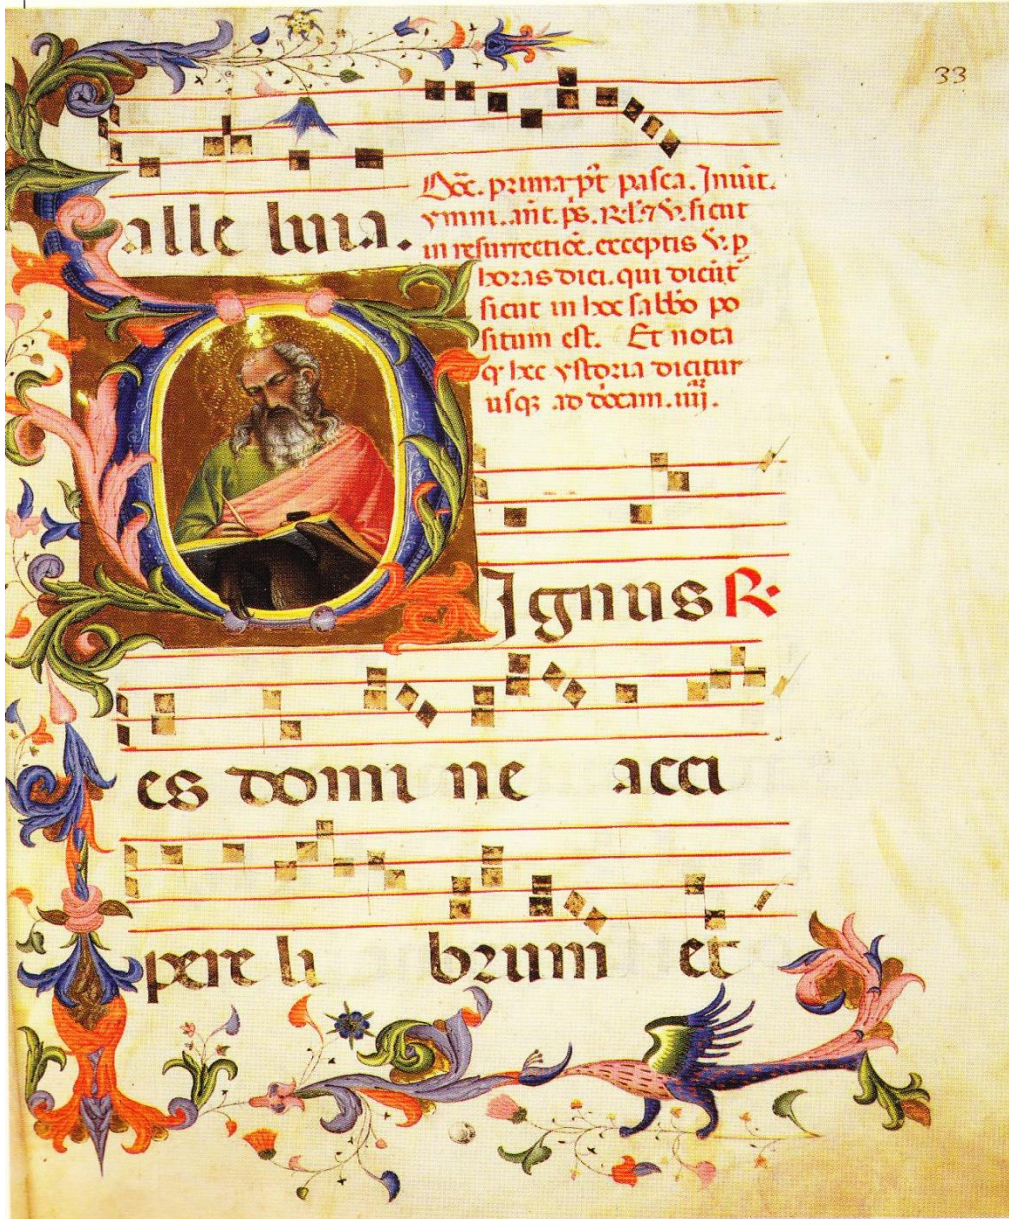 33
alle luia.
Dōc. prima p̄t pasca. Inuit.
ymni. añt. p̄s. R̄. ⁊ V̄. sicut
in resurrectiōe. exceptis V̄. p
horas diei. qui dicūt̄
sicut in hoc sabbō po
situm est. Et nota
q hec ystoria dicitur
usqꝫ ad docam. iiij.
Ignus R.
es domi ne acci
pere li brum et